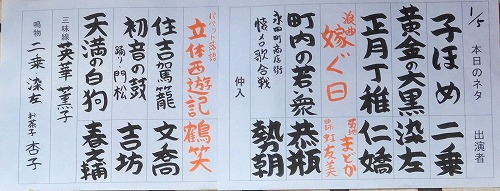 1/5 本日のネタ 出演者
子ほめ 二乗
黄金の大黒 染左
正月丁稚 仁嬌
浪曲 嫁ぐ日 真山まどか
曲師 虹友美
町内の若い衆 恭瓶
永田町商店街
懐メロ歌合戦 勢朝
仲入
パペット落語
立体西遊記 鶴笑
住吉駕籠 文喬
初音の鼓 吉坊
踊り・門松
天満の白狗 春之輔
三味線 英華 薫子
鳴物 二乗 染左 お茶子 杏子